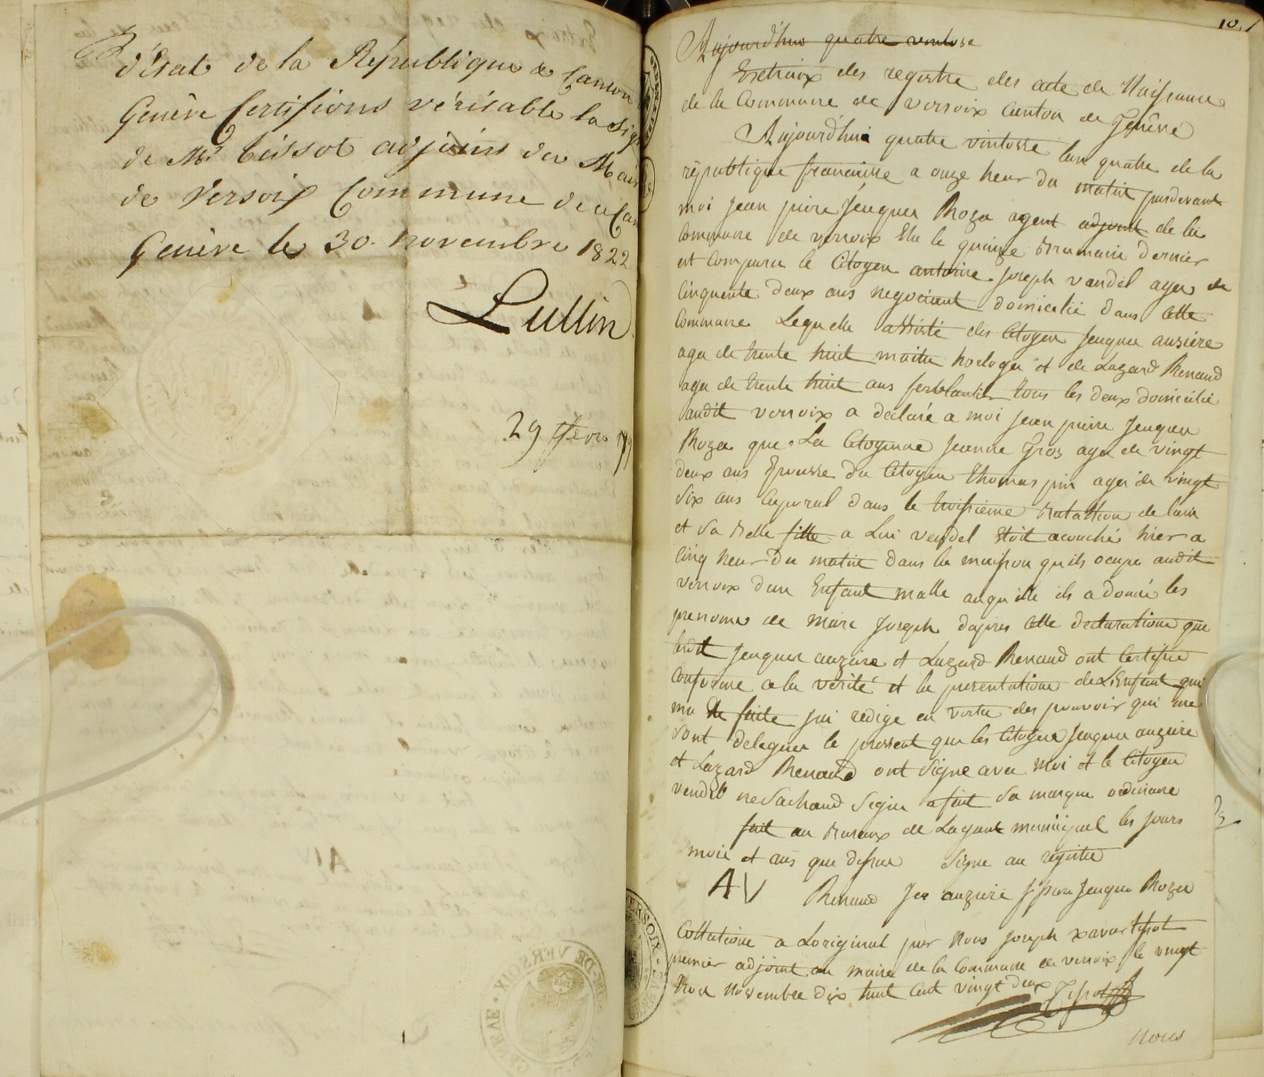 d'état de la République & Canton
Genève Certifions véritable la Sig
de Mr Tissot adjoint du Mair
de Versoix Commune de ce Can
Genève le 30. novembre 1822
Lullin
29
Aujourd'huis quatre ventosse
Extraix des registre des acte de Naissance
de la Commune de versoix canton de Genêve
Aujourd'hui quatre vintosse lan quatre de la
république francaisse a onze heur du matin pardevant
moi jean piere jenquen Roza agent adjoint de la
Commune de versoix Elu le quinze brumaire dernier
est comparu le Citoyen antoine joseph vandel ager de
Cinquente deux ans negociant domicelié dans cette
Commune Lequelle assisté des Citoyen jenquen auziere
age de trente huit maitre horloger et de Lazard Renaud
age de trente huit ans ferblantier tous les deux domicélié
audit versoix a déclaré a moi jean pierre jenquen
Roza que La Citoyenne jeanne Gros age de vingt
deux ans Epousse du Citoyen thomas pin agé de vingt
Six ans Caporal dans le troissieme Batallion de lain
et Sa Belle fille a Lui vendel Etoit acouché hier a
Cinq heur du matin dans la maisson quils ocupe audit
versoix dun Enfant malle auquelle ils a donné les
prenoms de Marc Joseph dapres cette declaratione que
ledit jenquen auziere et Lazard Renaud ont Certifié
Conforme a la vérité et la presentatione de LEnfant qui
ma Ete faite jai rédige en vertu des pouvoir qui me
sont deleguer le pressent que les Citoyen jenquen auziere
et Lazard Renaud ont Signe avec moi et le Citoyen
vendel ne Sachand Signer a fait Sa marque ordinaire
fait au Bureaux de Lagent municipal les jours
mois et ans que dessue Signe au registre
AV Renaud auziere jenquen Roza
Collatione a Loriginal par Nous joseph xavar tissot
premier adjoint au maire de la Commune de versoix le vingt
Nov Novembre dix huit cent vingt deux Tissot
Nous